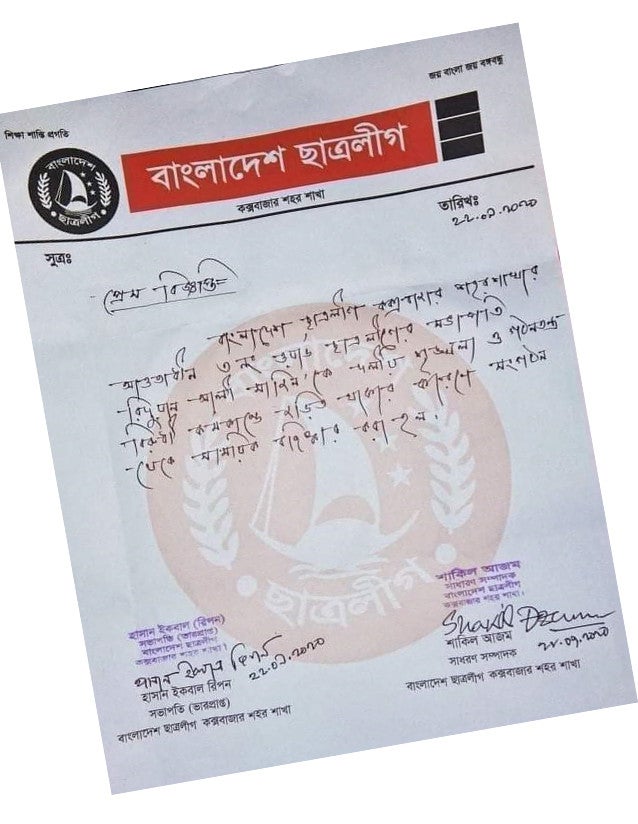 জয় বাংলা জয় বঙ্গবন্ধু
শিক্ষা শান্তি প্রগতি
বাংলাদেশ ছাত্রলীগ
বাংলাদেশ ছাত্রলীগ
কক্সবাজার শহর শাখা
তারিখঃ
২২.০৯.২০২০
সূত্রঃ
প্রেস বিজ্ঞপ্তি
বাংলাদেশ ছাত্রলীগ কক্সবাজার শহর শাখার
আওতাধীন ৩ নং ওয়ার্ড ছাত্রলীগের সভাপতি
আলী কে দলীয় শৃঙ্খলা ও গঠনতন্ত্র
বিরোধী কর্মকান্ডে জড়িত থাকার কারণে সংগঠন
থেকে সাময়িক বহিষ্কার করা হল।
বাংলাদেশ
ছাত্রলীগ
শাকিল আজম
সাধারণ সম্পাদক
বাংলাদেশ ছাত্রলীগ
কক্সবাজার শহর শাখা।
হাসান ইকবাল (রিপন)
সভাপতি (ভারপ্রাপ্ত)
বাংলাদেশ ছাত্রলীগ
কক্সবাজার শহর শাখা।
শাকিল আজম
২২.০৯.২০২০
সাধরণ সম্পাদক
বাংলাদেশ ছাত্রলীগ কক্সবাজার শহর শাখা
হাসান ইকবাল রিপন
২২.০৯.২০২০
হাসান ইকবাল রিপন
সভাপতি (ভারপ্রাপ্ত)
বাংলাদেশ ছাত্রলীগ কক্সবাজার শহর শাখা